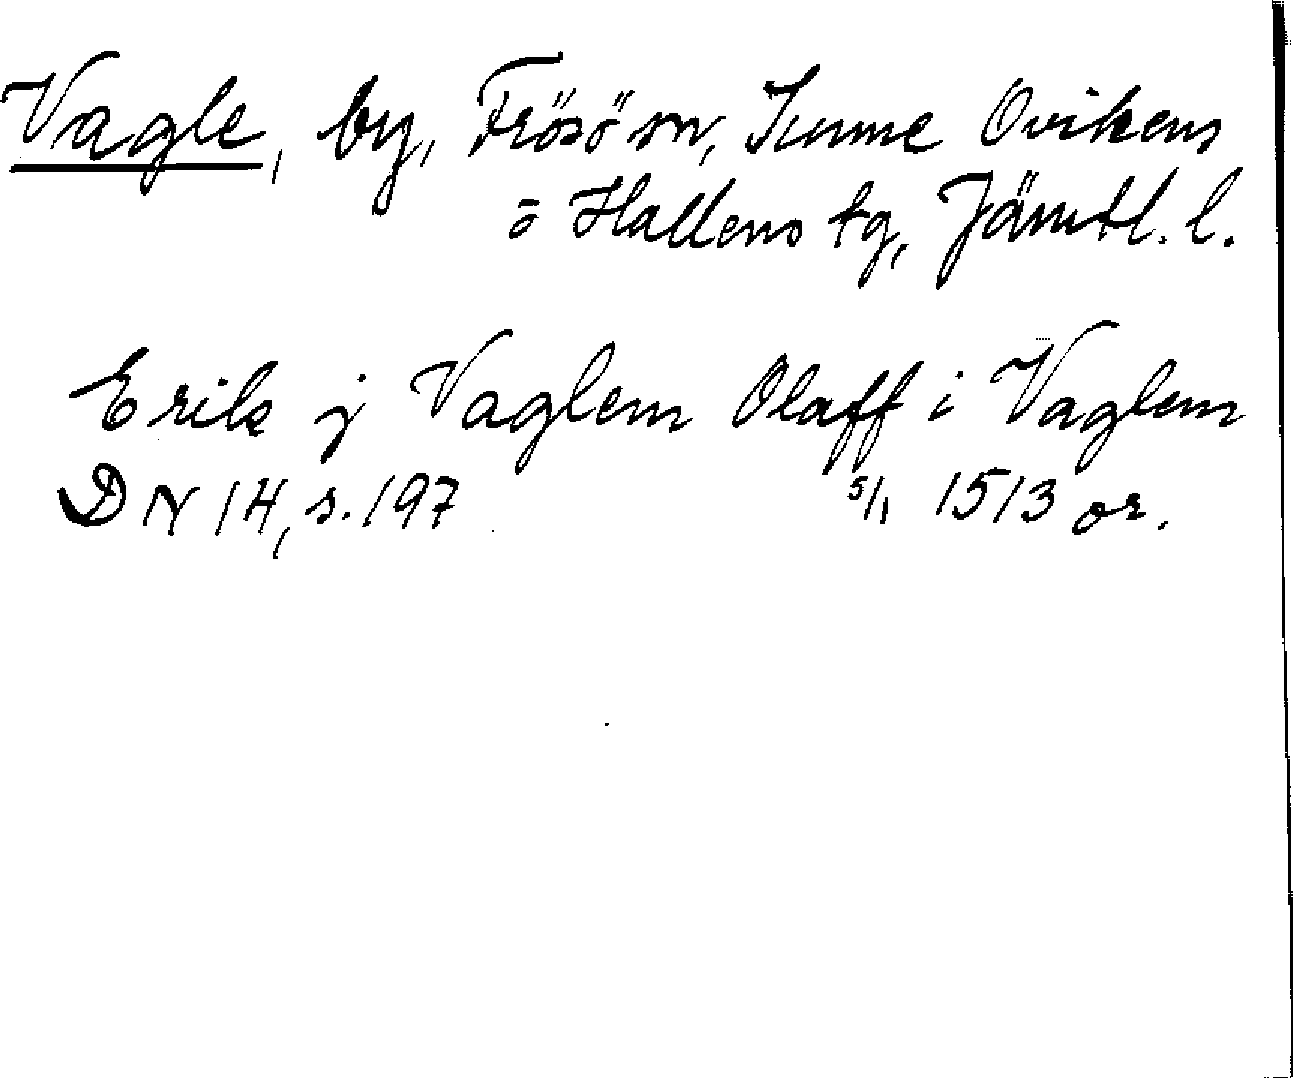 Vagle, by, Frösö sn, Sunne Ovikens
o Hallens tg, Jämtl. l.
Erik j Vaglem Olaff i Vaglem
DN 14, s. 197 5/1 1513 or.